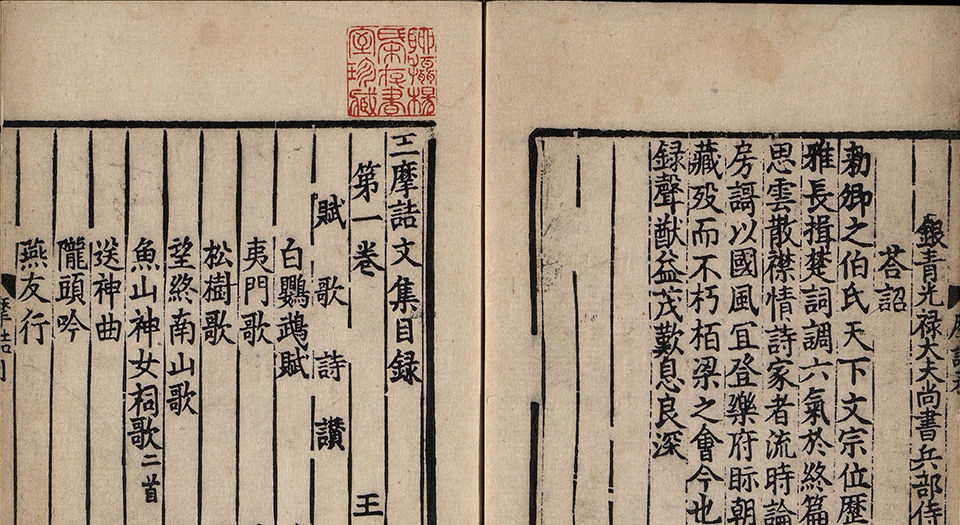 銀青光禄大夫尚書兵部侍
荅詔
敕卿之伯氏天下文宗位歷
雅長揖楚詞調六氣於終篇
思雲散襟情詩家者流時論
房謌以國風宜登樂府眎朝
藏歿而不朽栢梁之會今也
録聲猷益茂歎息良深
聊攝楊
宋存書
室珍藏
王摩詰文集目録
第一卷 王
賦 歌 詩 讚
白鸚鵡賦
夷門歌
松樹歌
望終南山歌
魚山神女祠歌二首
送神曲
隴頭吟
燕友行